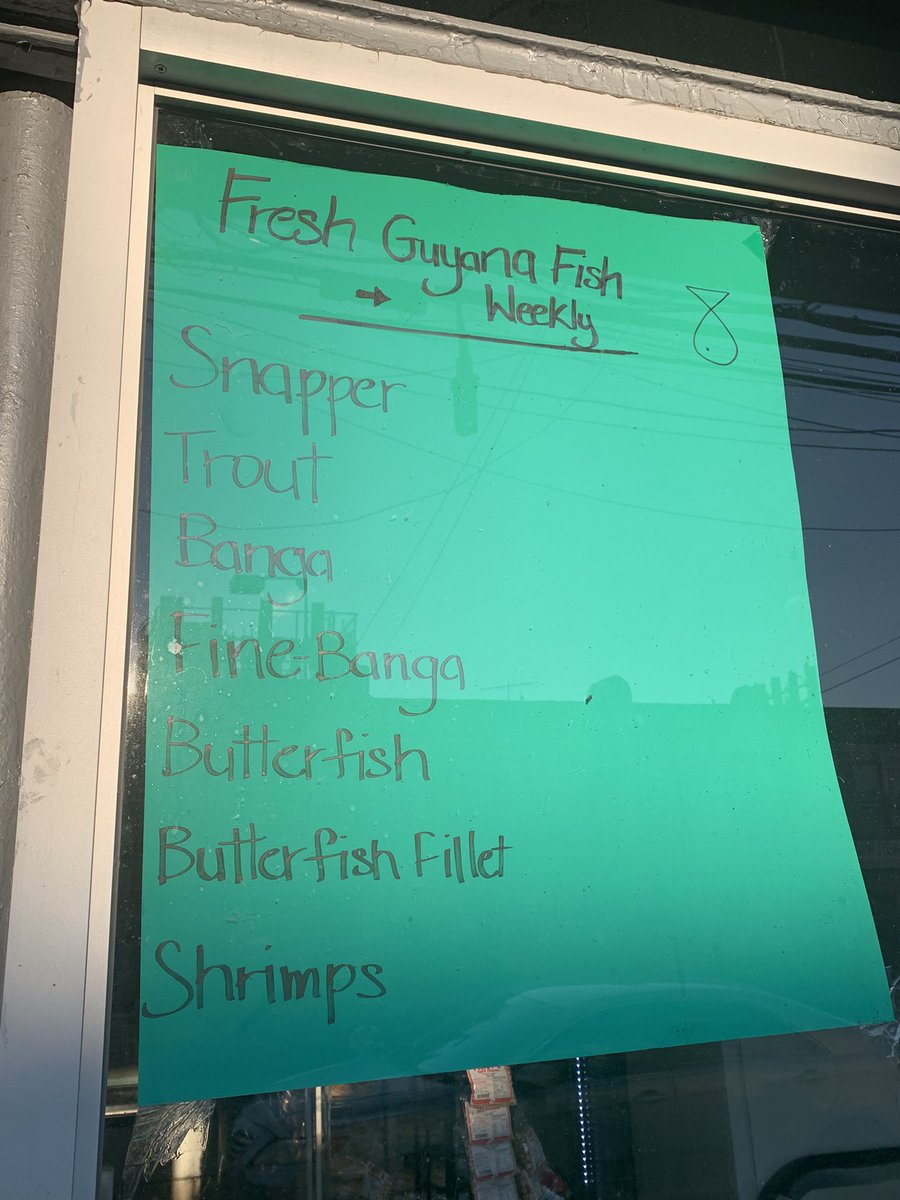 Fresh Guyana Fish
→ Weekly
Snapper
Trout
Banga
Fine-Banga
Butterfish
Butterfish Fillet
Shrimps